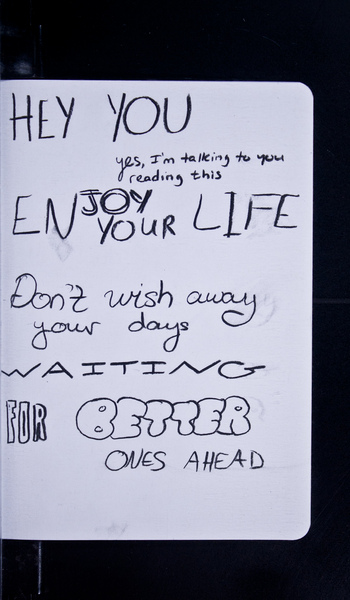 HEY YOU
yes, I'm talking to you
reading this
ENJOY YOUR LIFE
Don't wish away
your days
WAITING
FOR BETTER
ONES AHEAD